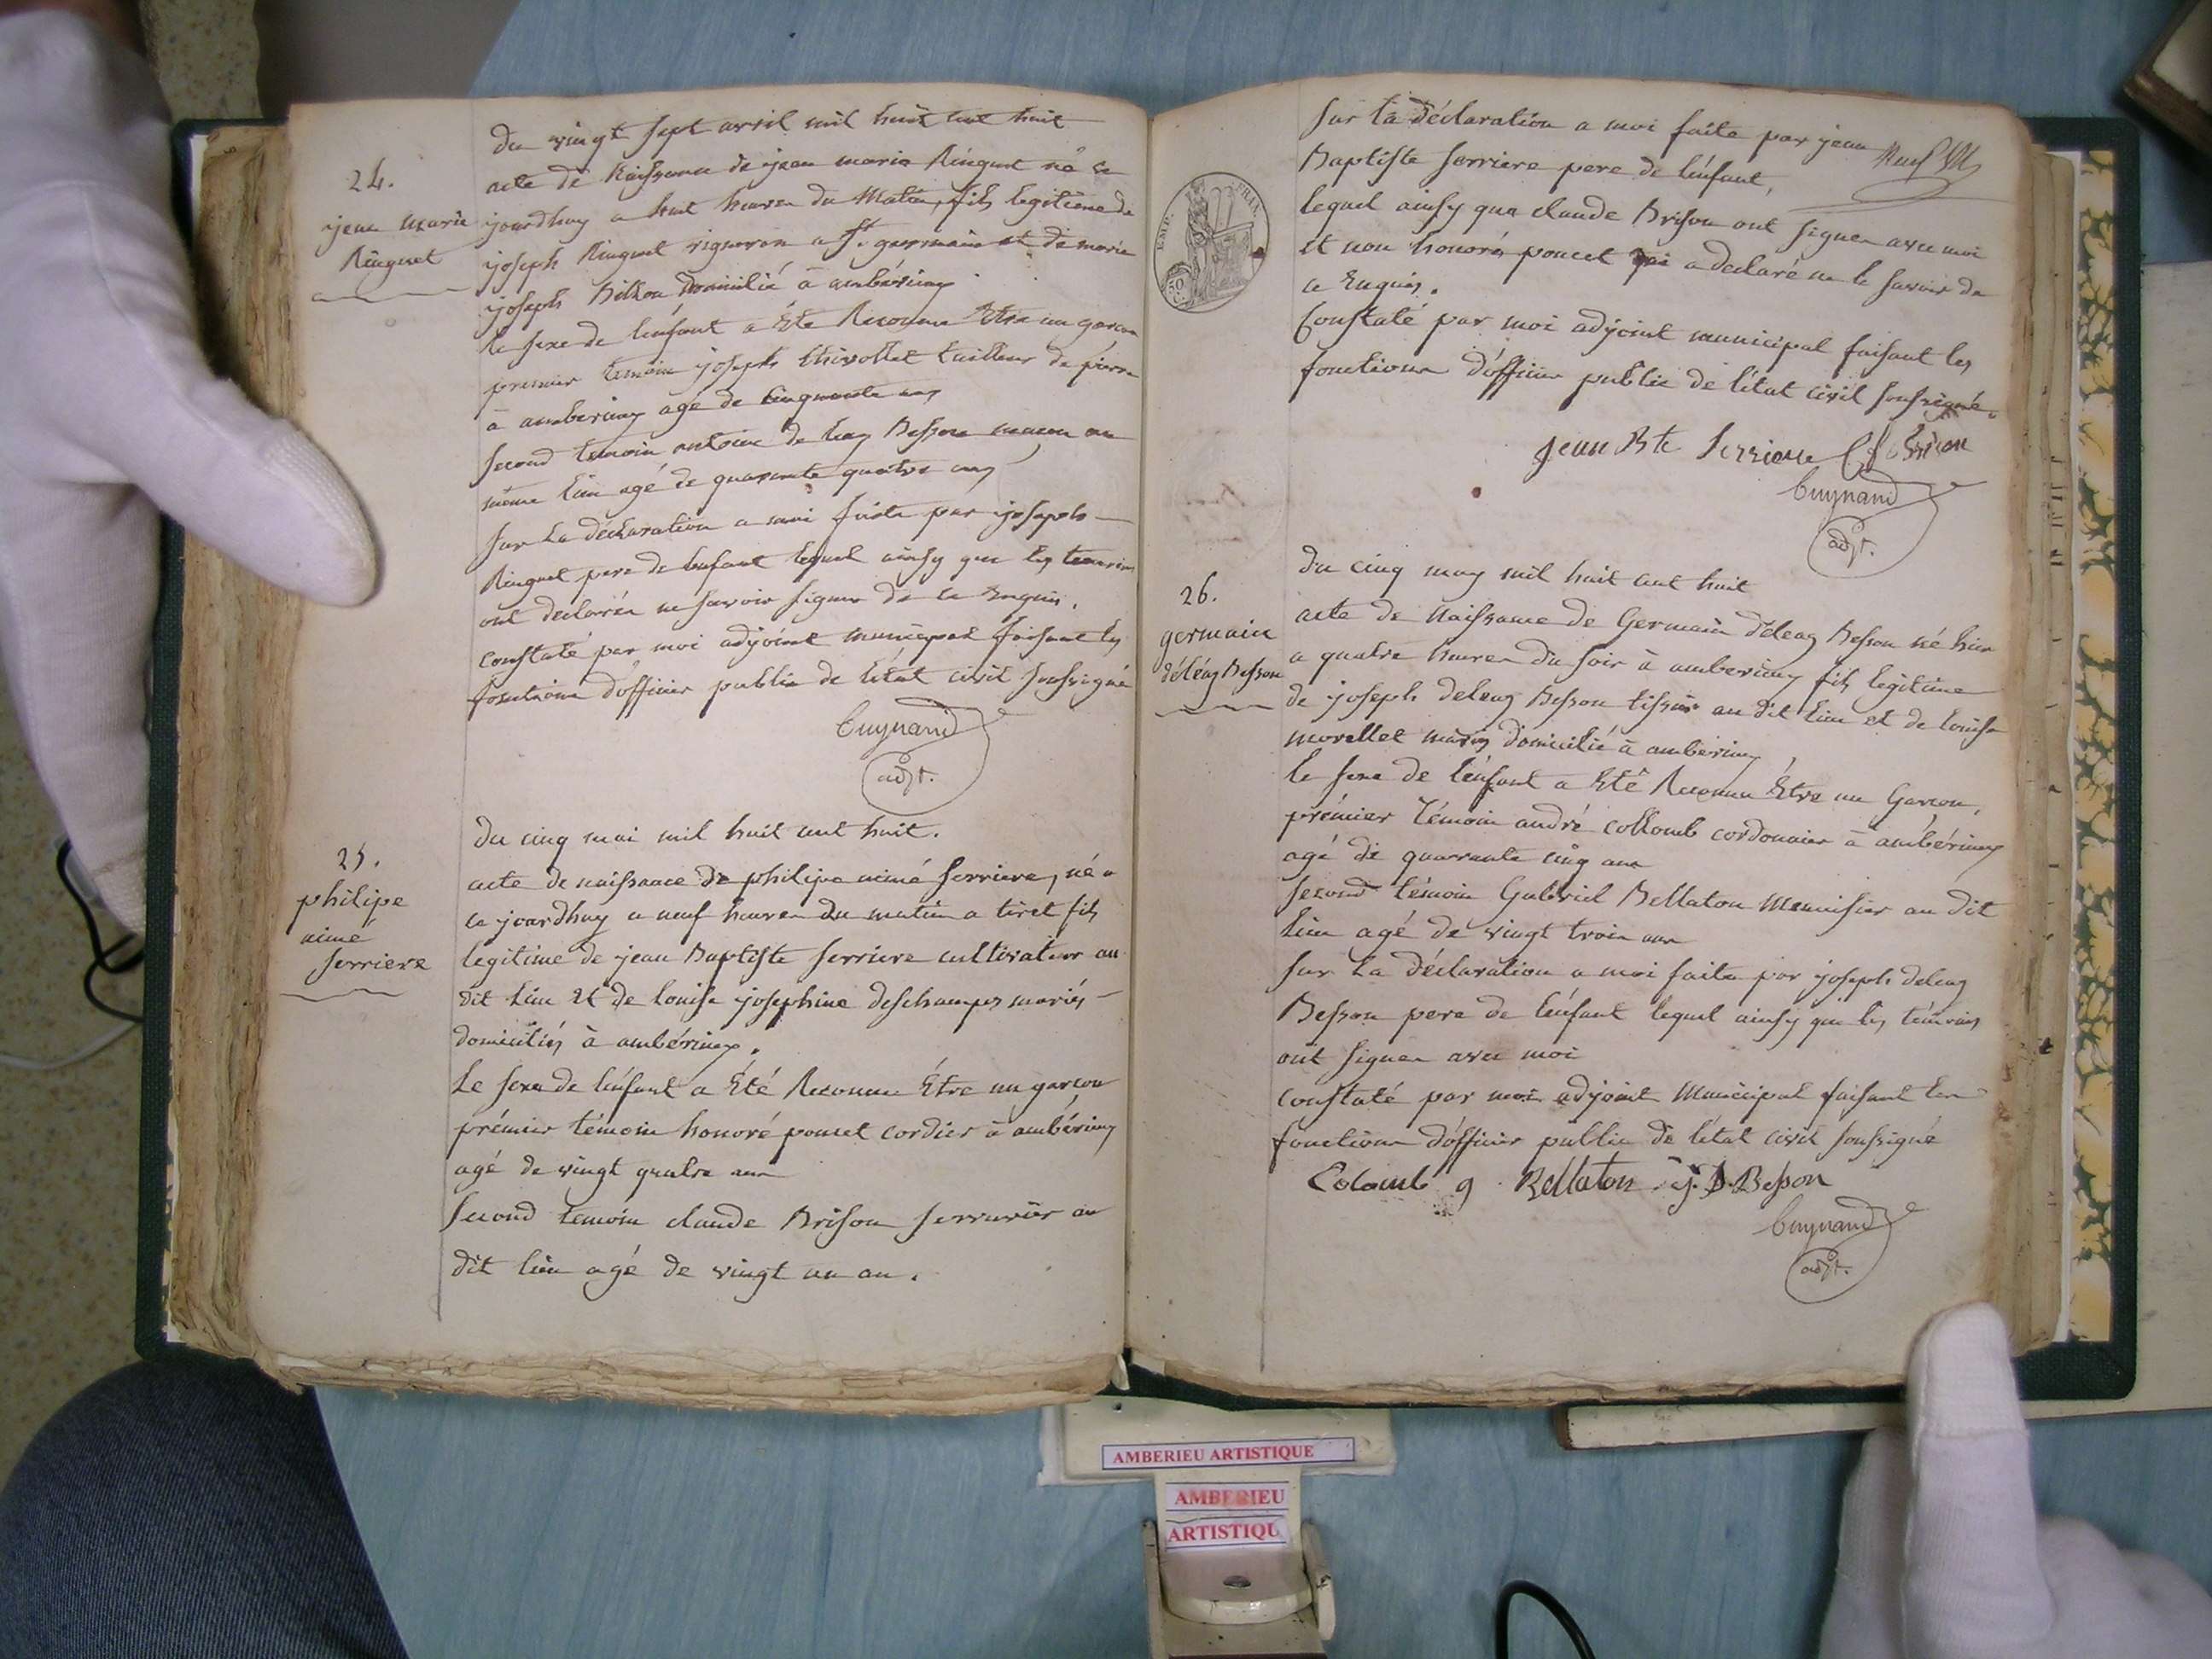 24.
jean marie
Ringuet
du vingt sept avril mil huit cent huit
acte de Naissance de jean marie Ringuet né ce
jourdhuy a huit heures du Matin, fils legitime de
joseph Ringuet vigneron a St. germain et de marie
joseph domicilié à ambérieux
le sexe de lenfant a Eté Reconnu Etre un garcon
premier temoin joseph Chivollet tailleur de pierre
à amberieux agé de Cinquante ans
second temoin antoine de Leaz Besson macon au
même lieu agé de quarante quatre ans
sur La déclaration a moi faite par joseph
Ringuet pere de lenfant lequel ainsy que les temoins
ont declarés ne savoir signer de ce Enquis.
constaté par moi adjoint municipal faisant les
fonctions dofficier public de létat civil soussigné
Cuynand
adjt.
25.
philipe
aimé
serriere
du cinq mai mil huit cent huit.
acte de naissance de philipe aimé serriere, né a
ce jourdhuy a neuf heures du matin a tiret fils
legitime de jean Baptiste serriere cultivateur au
dit lieu Et de louise josephine deschamps mariés
domiciliés à ambérieux.
Le sexe de lénfant a Été Reconnu Être un garcon
prémier témoin honoré poncet cordier à ambérieux
agé de vingt quatre ans
second temoin claude Brison serrurier au
dit lieu agé de vingt un an.
EMP. FRAN.
50
C.
sur la déclaration a moi faite par jean
Baptiste serriere pere de lénfant,
lequel ainsy que claude Brison ont signer avec moi
et non honoré poncet qui a declaré ne le savoir de
ce Enquis.
Constaté par moi adjoint municipal faisant les
fonctions d'officier public de létat civil soussigné.
jean Bte Serriere Cl Brison
Cuynand
adjt.
26.
germain
déléaz Besson
du cinq may mil huit cent huit
acte de Naissance de Germain déleaz Besson né hier
a quatre heures du soir à amberieux fils legitime
de joseph deleaz Besson tissier au dit lieu et de louise
morellet mariés domicilié à amberieux
le sexe de lénfant a Eté Reconnu Être un Garcon.
prémier Témoin andré collomb cordonnier à ambérieux
agé de quarante cinq ans
second témoin Gabriel Bellaton Menuisier au dit
lieu agé de vingt trois ans
sur La déclaration a moi faite par joseph deleaz
Besson pere de lénfant lequel ainsy que les témoins
ont signer avec moi
constaté par moi adjoint Municipal faisant les
fonctions dófficier public de létat civil soussigné
Colomb g. Bellaton j. D. Besson
Cuynand
adjt.
AMBERIEU ARTISTIQUE
AMBERIEU
ARTISTIQU